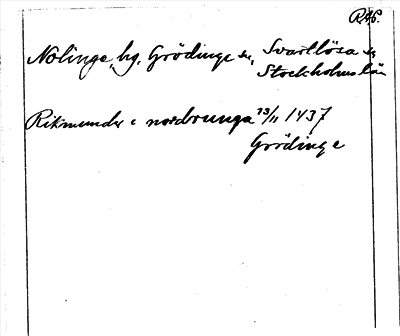 RAP.
Nolinge, hg. Grödinge sn, Svartlösa hd
Stockholms län
Rikmunder i nordrunga 23/11 1437
Grödinge